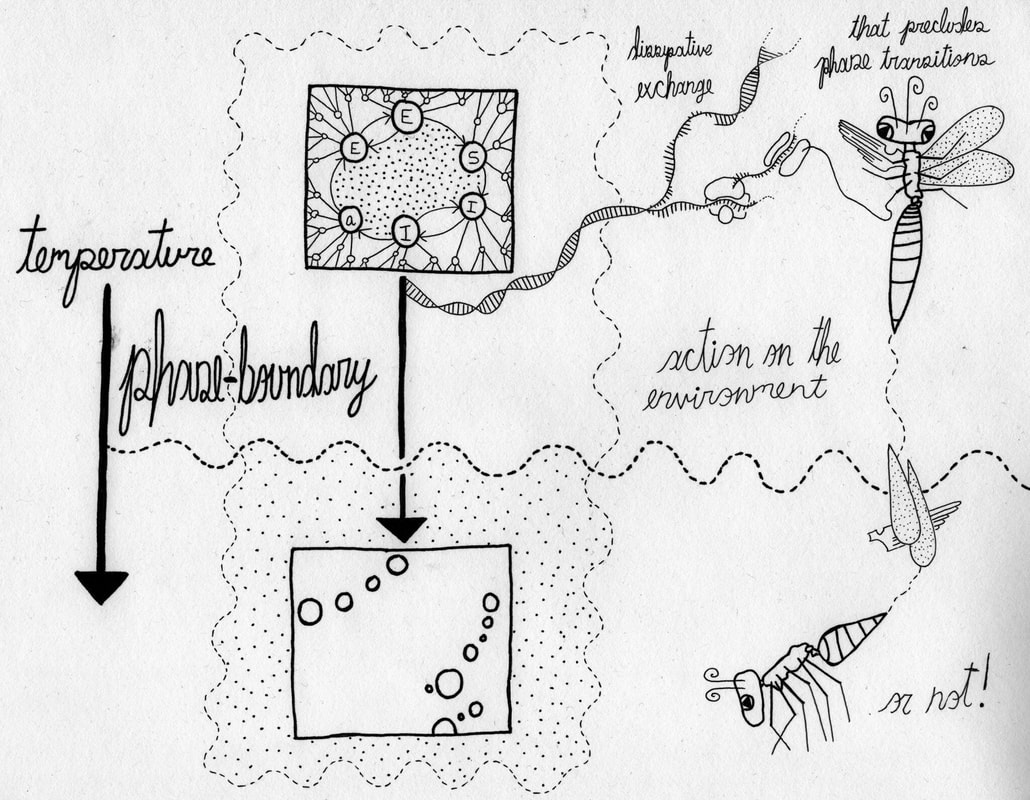 dissipative
exchange
that precludes
phase transitions
E
E
S
a
I
I
temperature
phase-boundary
action on the
environment
or not!